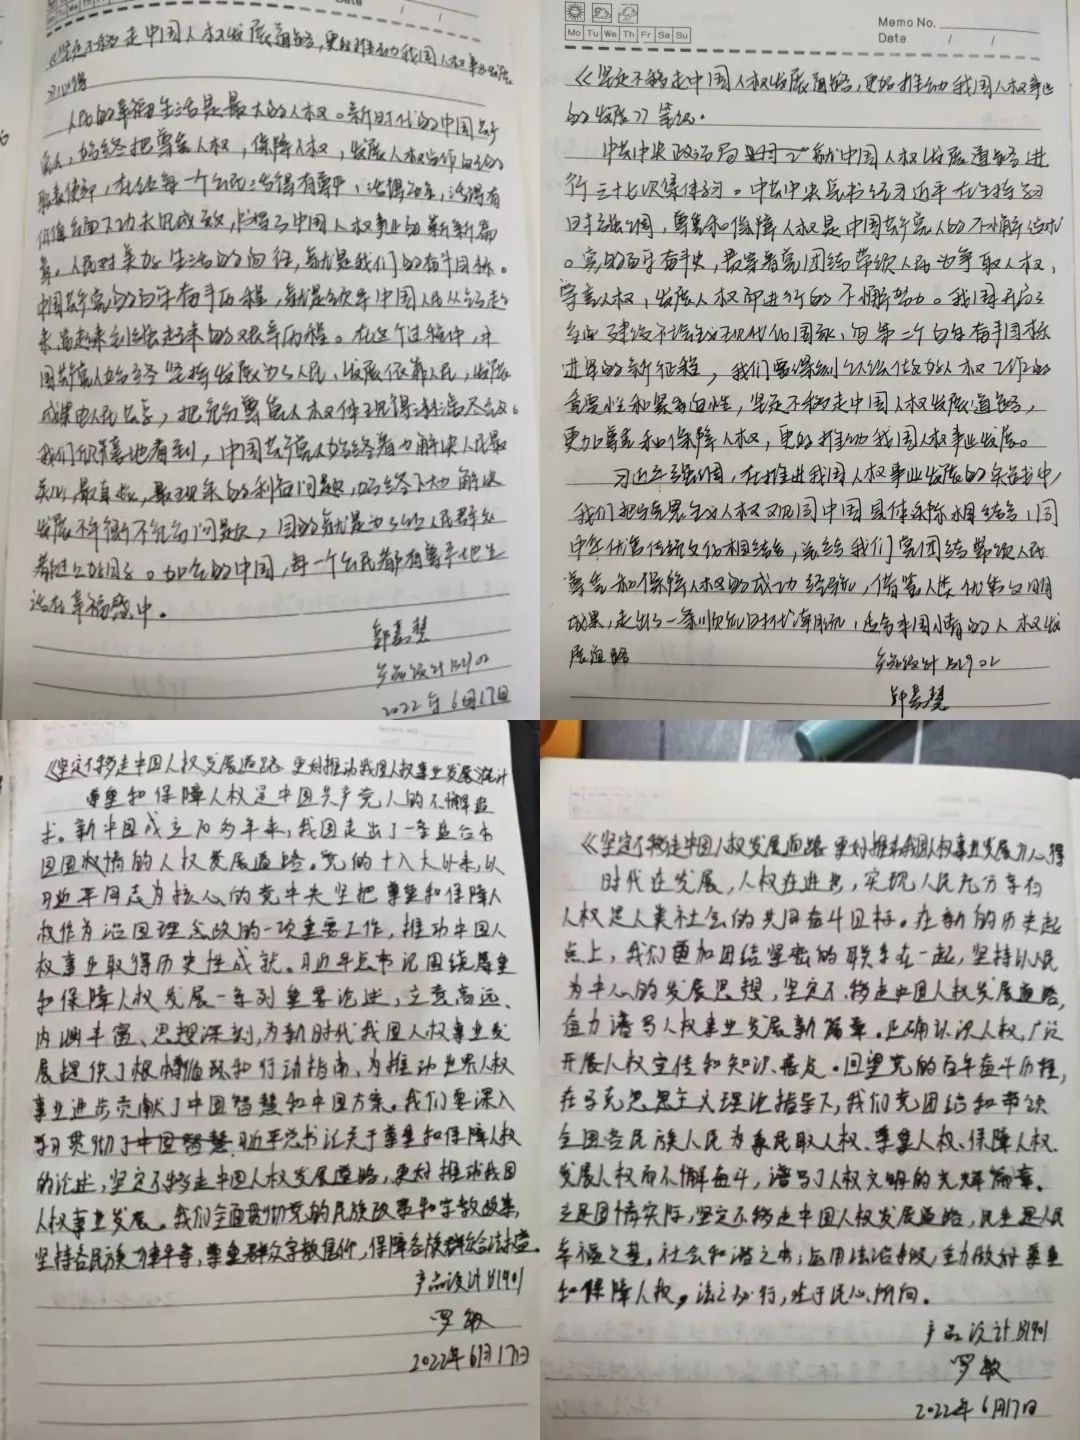 Date
《坚定不移走中国人权发展道路,更好推动我国人权事业发展》
心得
人民的幸福生活是最大的人权。新时代的中国共产
党人,始终把尊重人权,保障人权,发展人权
每一个公民活得有尊严,活得
中国人权事业的新篇
章。人民对美好生活的向往,就是我们的奋斗目标。
中国共产党的百年奋斗历程,就是领导中国人民从站起
来富起来到强起来的艰辛历程。在这个过程中,中
国共产党人始终坚持发展为了人民、发展依靠人民,发展
成果由人民共享,把充分尊重人权体现得淋漓尽致。
我们欣喜地看到,中国共产党人始终着力解决人民最
关心,最直接,最现实的利益问题,始终下大力解决
发展不平衡不充分问题,目的就是为了
。如今的中国,每一个公民都有尊严地生
活在幸福感中。
产品设计B1902
2022年6月17日
Memo No.
Mo Tu We Th Fr Sa Su
Date / /
《坚定不移走中国人权发展道路,更好推动我国人权事业
的发展》笔记.
中共中央政治局 就中国人权发展道路进
行三十七次集体学习。中共中央总书记习近平在主持学习
时强调,尊重和保障人权是中国共产党人的不懈追求
。党的百年奋斗史,贯穿着党团结带领人民为争取人权,
尊重人权,发展人权而进行的不懈努力。我国开启了
全面建设社会主义现代化国家,向第二个百年奋斗目标
进军的新征程,我们要深刻认识做好人权工作的
重要性和紧迫性,坚定不移走中国人权发展道路,
更加尊重和保障人权,更好推动我国人权事业发展。
习近平强调,在推进我国人权事业发展的实践中,
我们把马克思主义人权观同中国具体实际相结合、同
中华优秀传统文化相结合,总结我们党团结带领人民
尊重和保障人权的成功经验,借鉴人类优秀文明
成果,走出了一条顺应时代潮流,适合本国国情的人权发
展道路
产品设计B1902
《坚定不移走中国人权发展道路 更好推动我国人权事业发展》统计
尊重和保障人权是中国共产党人的不懈追
求。新中国成立70多年来,我国走出了一条适合本
国国情的人权发展道路。党的十八大以来,以
习近平同志为核心的党中央坚把尊重和保障人
权作为治国理念政的一项重要工作,推动中国人
权事业取得历史性成就。习近平总书记围绕尊重
和保障人权发展一系列重要论述,立意高远、
内涵丰富、思想深刻,为新时代我国人权事业发
展提供了根本遵循和行动指南,为推动世界人权
事业进步贡献了中国智慧和中国方案。我们要深入
学习贯彻了中国智慧习近平总书记关于尊重和保障人权
的论述,坚定不移走中国人权发展道路,更好推动我国
人权事业发展。我们全面贯彻党的民族政策和宗教政策,
坚持各民族一律平等,尊重群众宗教信仰,保障各族群众合法权益.
产品设计B1901
罗敏
2022年6月17日
《坚定不移走中国人权发展道路 更好推动我国人权事业发展》心得
时代在发展,人权在进步,实现人民充分享有
人权是人类社会的共同奋斗目标。在新的历史起
点上,我们更加团结紧密的联系在一起,坚持以人民
为中心的发展思想,坚定不移走中国人权发展道路,
奋力谱写人权事业发展新篇章。正确认识人权,广泛
开展人权宣传和知识普及。回望党的百年奋斗历程,
在马克思思主义理论指导下,我们党团结和带领
全国各民族人民为争民取人权、尊重人权、保障人权、
发展人权而不懈奋斗,谱写了人权文明的光辉篇章。
立足国情实际,坚定不移走中国人权发展道路,民生是人民
幸福之基,社会和谐之本,运用法治手段,全力做好尊重
和保障人权,法之必行,在于民心所向。
产品设计B1901
罗敏
2022年6月17日